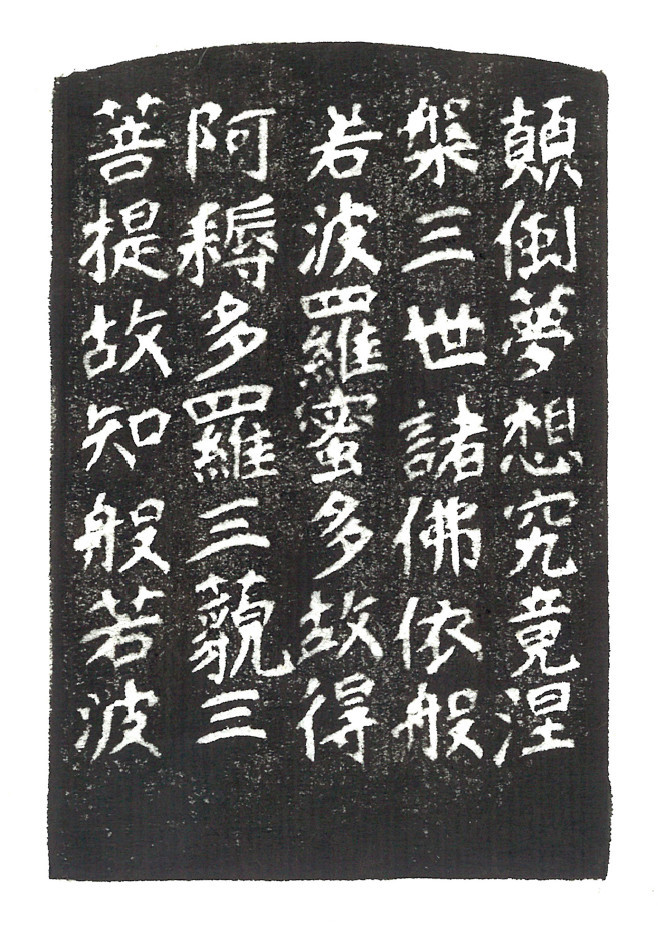 顛倒夢想究竟涅
槃三世諸佛依般
若波羅蜜多故得
阿耨多羅三藐三
菩提故知般若波